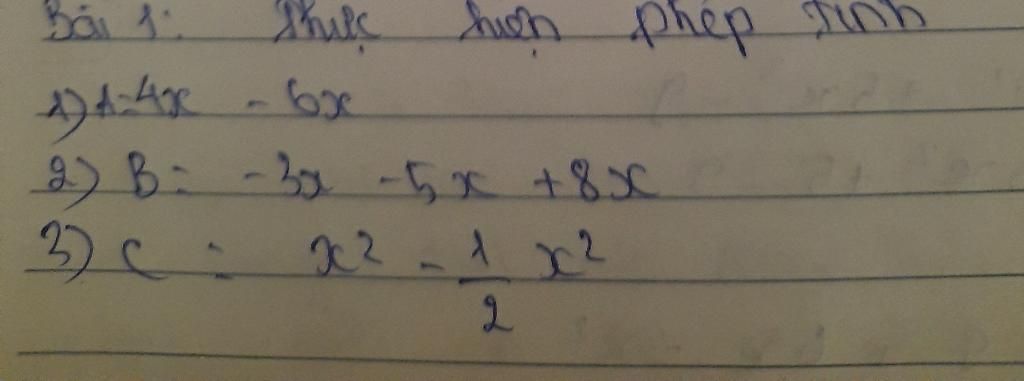 Bài 1: Thực hiện phép tính
1) A = 4x - 6x
2) B = -3x - 5x + 8x
3) C = x² - 1/2 x²